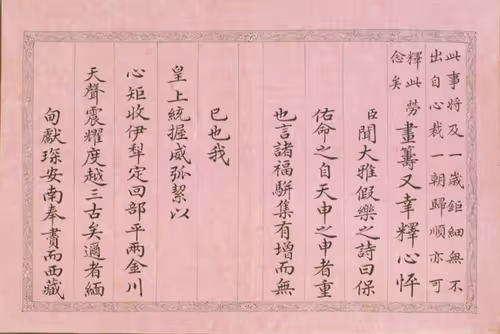 此事将及一歲鉅細無不
出自心裁一朝歸順亦可
釋此勞
念矣
畫籌又幸釋心怦
臣聞大雅假樂之詩曰保
佑命之自天申之申者重
也言諸福駢集有增而無
已也我
皇上統握威弧絜以
心矩收伊犁定回部平兩金川
天聲震耀度越三古矣邇者緬
甸獻琛安南奉賮而西藏